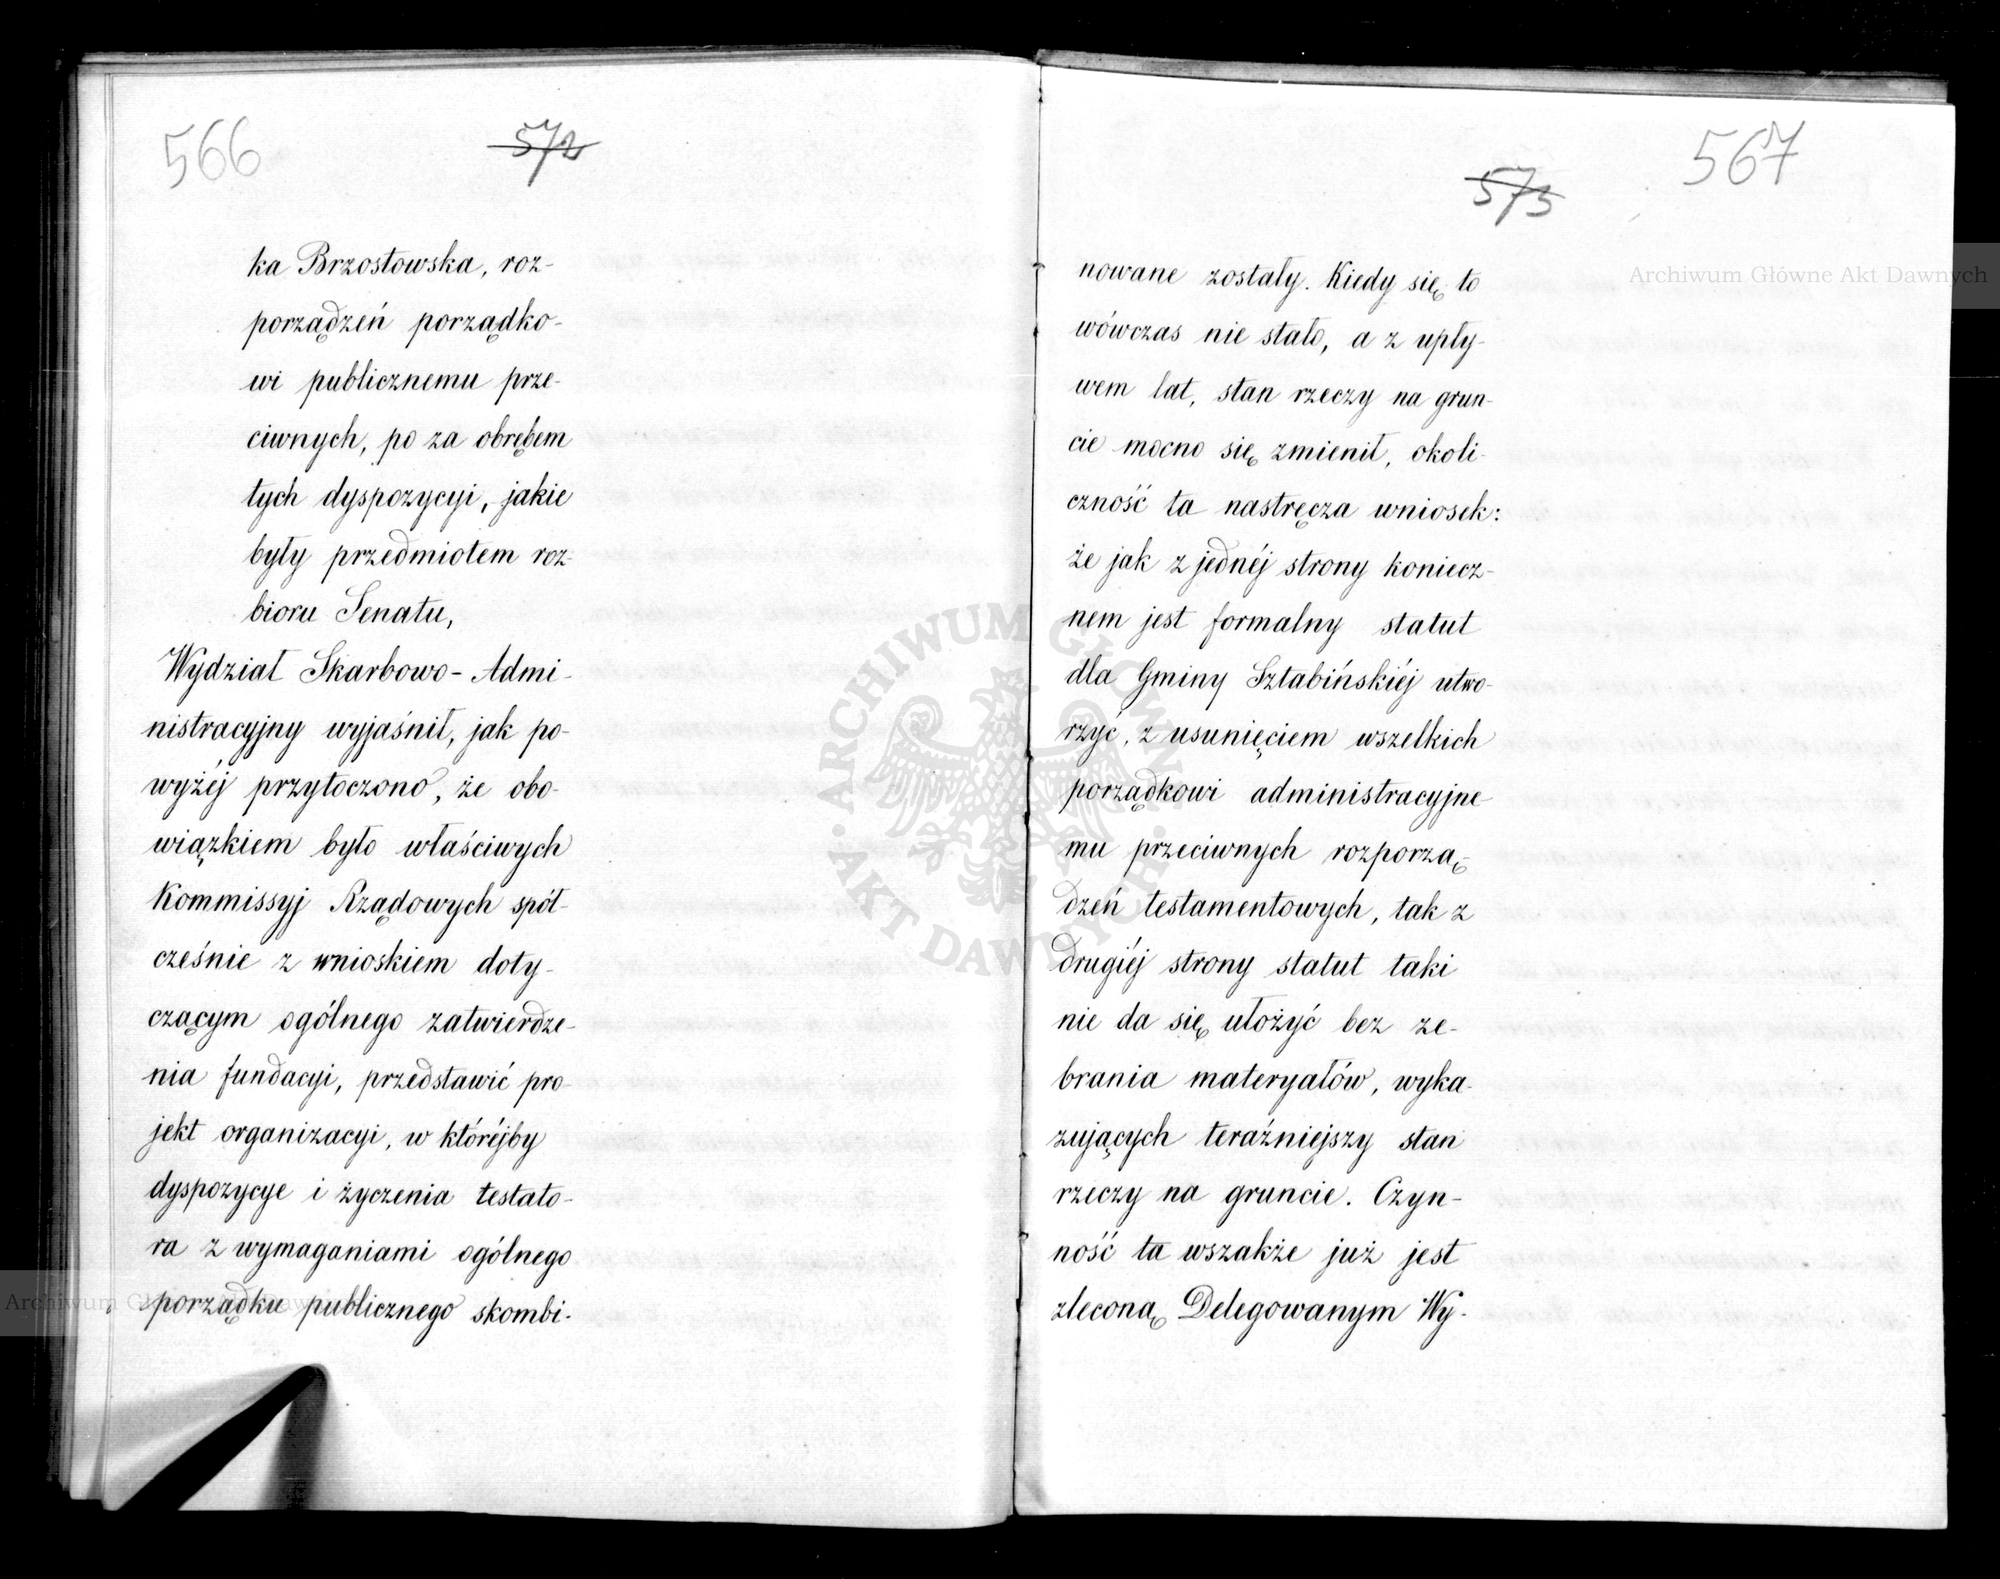 566
572
ka Brzostowska, roz-
porządzeń porządko-
wi publicznemu prze-
ciwnych, po za obrębem
tych dyspozycyi, jakie
były przedmiotem roz-
bioru Senatu,
Wydział Skarbowo-Admi-
nistracyjny wyjaśnił, jak po-
wyżéj przytoczono, że obo-
wiązkiem było właściwych
Kommissyj Rządowych spół-
cześnie z wnioskiem doty-
czącym ogólnego zatwierdze-
nia fundacyi, przedstawić pro-
jekt organizacyi, w któréjby
dyspozycye i życzenia testato-
ra z wymaganiami ogólnego
porządku publicznego skombi-
567
573
nowane zostały. Kiedy się to
wówczas nie stało, a z upły-
wem lat, stan rzeczy na grun-
cie mocno się zmienił, okoli-
czność ta nastręcza wniosek:
że jak z jednéj strony koniecz-
nem jest formalny statut
dla Gminy Sztabińskiéj utwo-
rzyć, z usunięciem wszelkich
porządkowi administracyjne-
mu przeciwnych rozporzą-
dzeń testamentowych, tak z
drugiéj strony statut taki
nie da się ułożyć bez ze-
brania materyałów, wyka-
zujących teraźniejszy stan
rzeczy na gruncie. Czyn-
ność ta wszakże już jest
zleconą Delegowanym Wy-
Archiwum Główne Akt Dawnych
ARCHIWUM GŁÓWNE · AKT DAWNYCH ·
Archiwum Główne Akt Dawnych